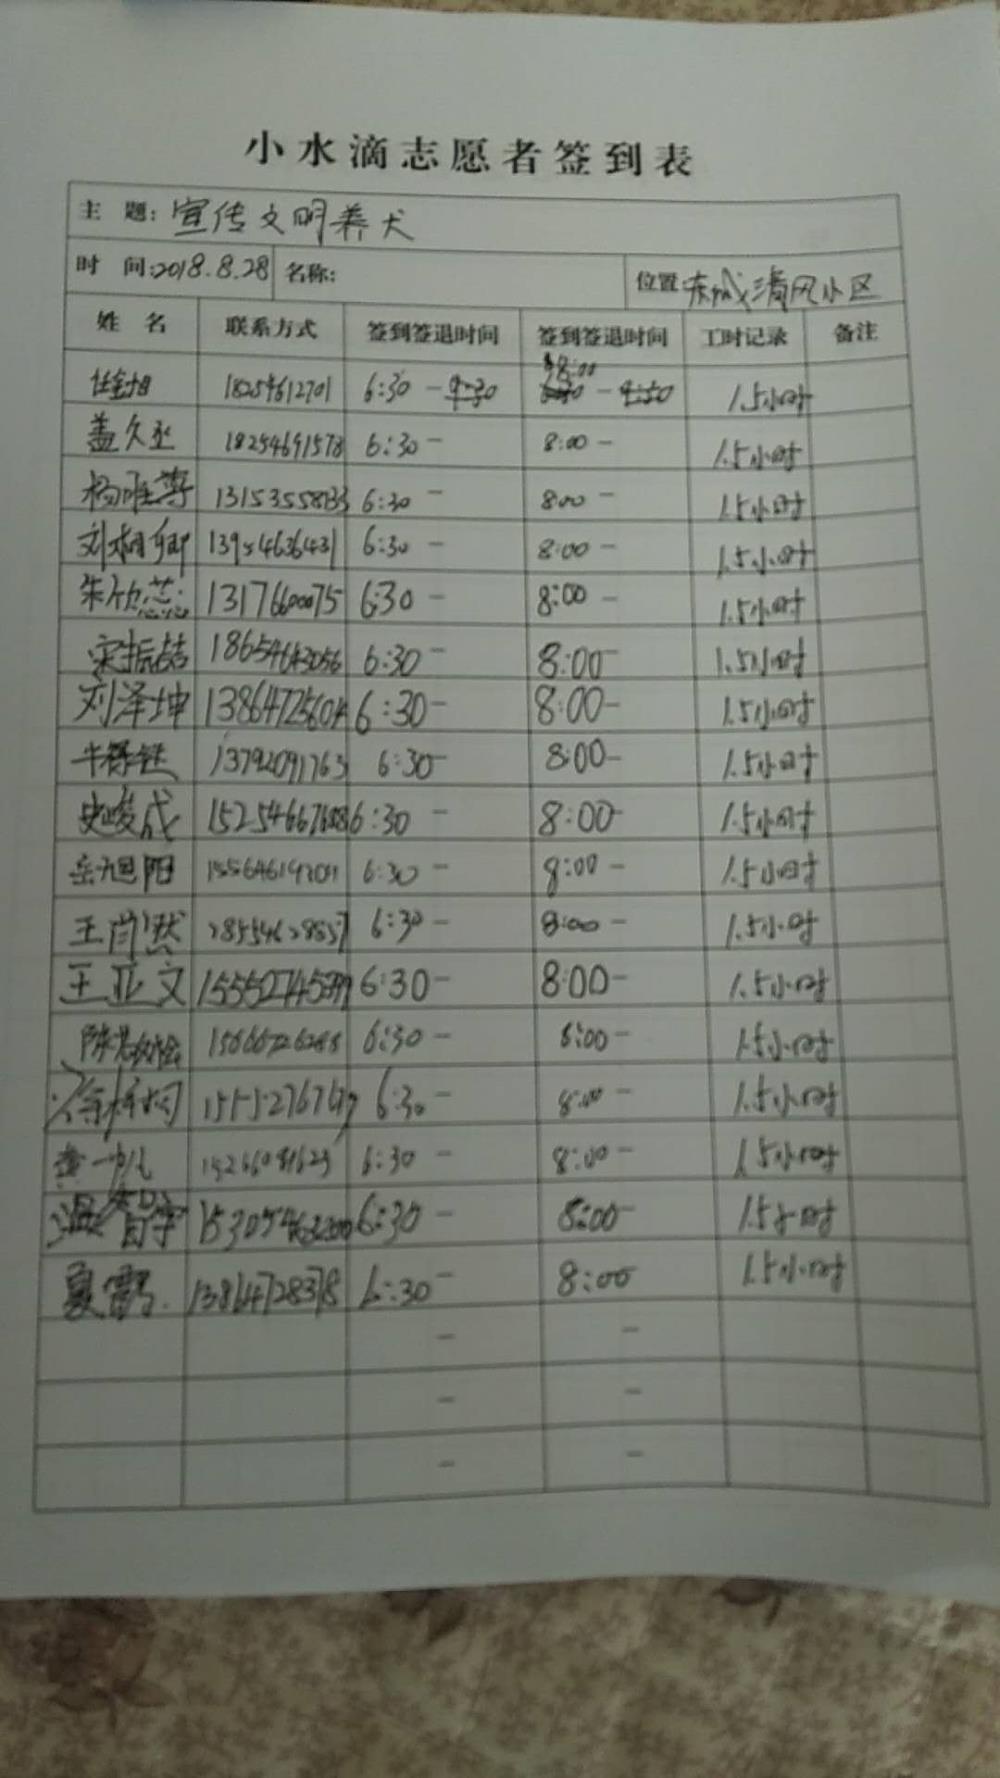 小水滴志愿者签到表
主 题: 宣传文明养犬
时 间: 2018.8.28 名称: 位置 东城清风小区
姓 名 联系方式 签到签退时间 签到签退时间 工时记录 备注
18254612701 6:30 - 9:30 8:00 - 9:30 1.5小时
盖久丞 18254691578 6:30 - 8:00 - 1.5小时
杨唯尊 6:30 - 8:00 - 1.5小时
刘桐卿 13954636431 6:30 - 8:00 - 1.5小时
朱欣蕊 6:30 - 8:00 - 1.5小时
宋振喆 18654643056 6:30 - 8:00 - 1.5小时
刘泽坤 13864725604 6:30 - 8:00 - 1.5小时
13792091763 6:30 - 8:00 - 1.5小时
史峻成 6:30 - 8:00 - 1.5小时
岳旭阳 6:30 - 8:00 - 1.5小时
王肖然 6:30 - 8:00 - 1.5小时
王亚文 6:30 - 8:00 - 1.5小时
6:30 - 8:00 - 1.5小时
6:30 - 8:00 - 1.5小时
6:30 - 8:00 - 1.5小时
6:30 - 8:00 - 1.5小时
夏雪 13864728378 6:30 - 8:00 1.5小时
- -
- -
- -